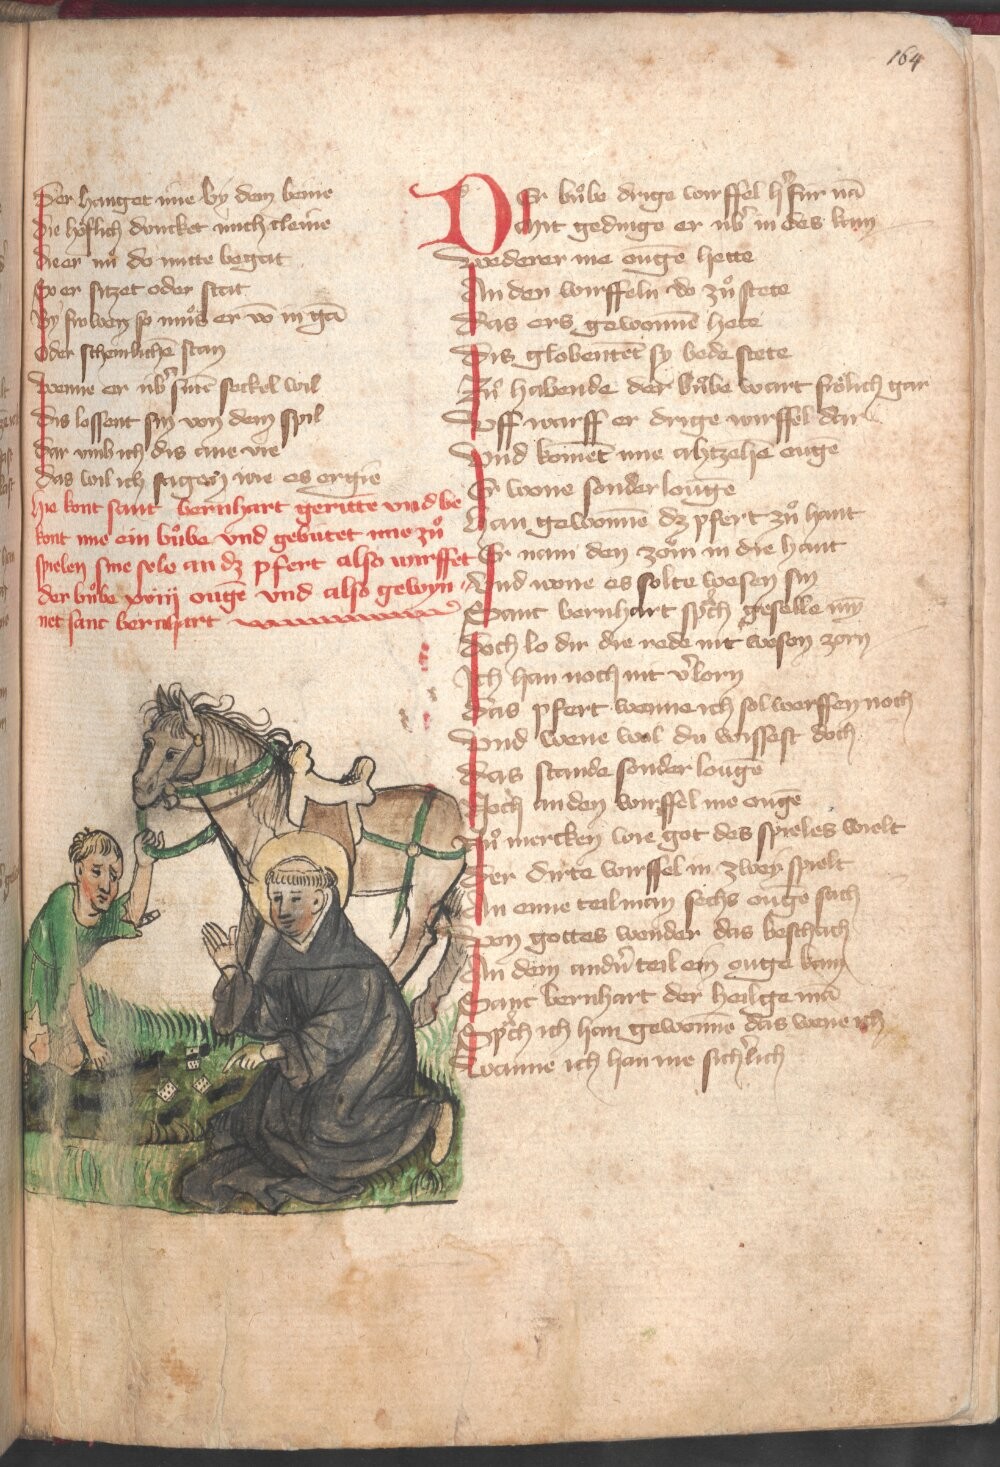 164
Der hanget ime by dem beine
Die hoͤflich duncket mich cleine
Die er nuͦ do mitte begat
So er sitzet oder stat
By frowen so muͦs er vō in gā
Oder schemlichē stan
Wenne er ubˀ sinē seckel wil
Dis lossent sin von dem spil
Dar umb ich dis ane vie
Das wil ich sagen wie es ergie
Hie kont sant bernhart gerittē vnd be
kont ime ein buͦbe vnd gebutet ime zuͦ
spielen sine sele an dz pfert also wurffet
der buͦbe xviij ougē vnd also gewyn
net sant bernhart
DEr buͦbe drige wurffel hˀfur nā
Mit gedinge er ubˀ in des kam
Wederer me ougē hette
An den wurffeln do zuͦ stete
Das ers gewonnē hete
Dis globentēt sy bede stete
Zuͦ habende der buͦbe wart froͤlich gar
Vff warff er drige wurffel dar
Vnd komēt ime ahtzehē ouge
Er wone sonder lougē
Han gewonnē dz pfert zuͦ hant
Er nam den zoͤm in die hant
Vnd wone es solte wesen sin
Sant bernhart spͬch geselle mȳ
Doch lo dir die rede nit wesen zorn
Ich han noch nit vˀlorn
Das pfert wenne ich sol werffen noch
Vnd wene wol du wissest doch
Das stande sonder lougē
Noch an den wurffel me ougē
Nuͦ mercken wie got des spieles wielt
Der dirte wurffel in zwey spielt
An eime teil man sechs ougē sach
Von gottes wonder das beschach
An dem andˀn teil ein ouge kam
Sant bernhart der heilge mā
Spͬch ich han gewonnē das wene ich
Wanne ich han me sichˀlich